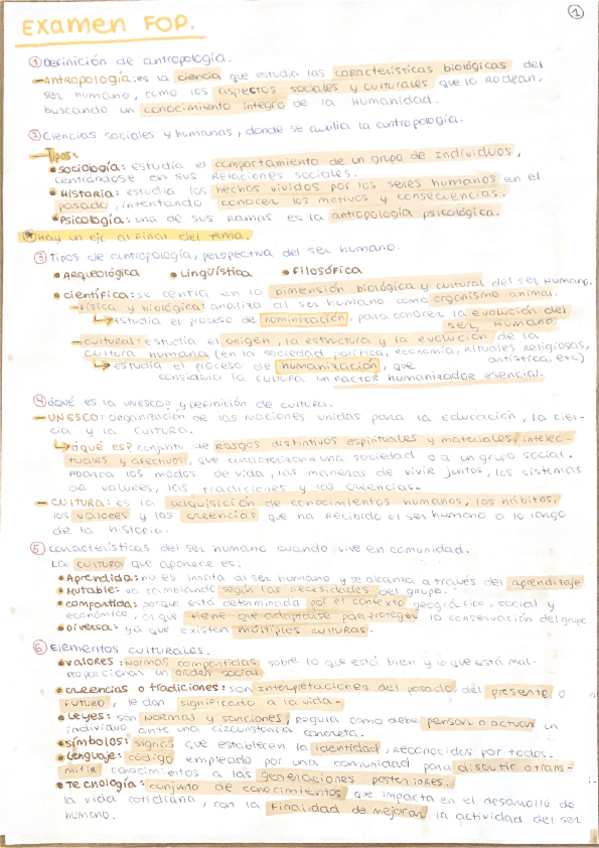 ①
Examen FOP.
① Definición de antropología.
- Antropología: es la ciencia que estudia las características biológicas del
ser humano, como los aspectos sociales y culturales que lo rodean,
buscando un conocimiento íntegro de la humanidad.
② Ciencias sociales y humanas, donde se auxilia la antropología.
- Tipos:
• Sociología: Estudia el comportamiento de un grupo de individuos,
centrándose en sus relaciones sociales.
• Historia: estudia los hechos vividos por los seres humanos en el
pasado, intentando conocer los motivos y consecuencias.
• Psicología: una de sus ramas es la antropología psicológica.
★ Hay un eje al final del tema.
③ Tipos de antropología, perspectiva del ser humano.
• Arqueológica • Lingüística • Filosófica
• Científica: se centra en la dimensión biológica y cultural del ser humano.
- Física y biológica: analiza al ser humano como organismo animal.
↳ estudia el proceso de hominización, para conocer la evolución del
ser humano.
- cultural: estudia el origen, la estructura y la evolución de la
cultura humana (en la sociedad política, economía, rituales religiosas,
artística, etc)
↳ estudia el proceso de humanización, que
considera la cultura un factor humanizador esencial.
④ ¿Qué es la UNESCO? y definición de cultura.
- UNESCO: organización de las Naciones Unidas para la educación, la cien-
cia y la cultura.
↳ ¿Qué es? conjunto de rasgos distintivos espirituales y materiales, intelec-
tuales y afectivos, que caracterizan a una sociedad o a un grupo social.
Abarca los modos de vida, las maneras de vivir juntos, los sistemas
de valores, las tradiciones y las creencias.
- CULTURA: es la adquisición de conocimientos humanos, los hábitos,
los valores y las creencias que ha recibido el ser humano a lo largo
de la historia.
⑤ Características del ser humano cuando vive en comunidad.
La cultura que aparece es:
• Aprendida: no es innata al ser humano y se alcanza a través del aprendizaje
• Mutable: va cambiando según las necesidades del grupo.
• compartida: porque está determinada por el contexto geográfico, social y
económico, al que tiene que adaptarse para proteger la conservación del grupo.
• Diversa: ya que existen múltiples culturas.
⑥ Elementos culturales.
• valores: Normas compartidas sobre lo que está bien y lo que está mal.
proporcionan un orden social
• creencias o tradiciones: son interpretaciones del pasado, del presente o
futuro, le dan significado a la vida.
• Leyes: son normas y sanciones, regula como debe pensar o actuar un
individuo ante una circunstancia concreta.
• símbolos: signos que establecen la identidad, reconocidos por todos.
• Lenguaje: código empleado por una comunidad para discutir o trans-
mitir conocimientos a las generaciones posteriores.
• Tecnología: conjunto de conocimientos que impacta en el desarrollo de
la vida cotidiana, con la finalidad de mejorar la actividad del ser
humano.